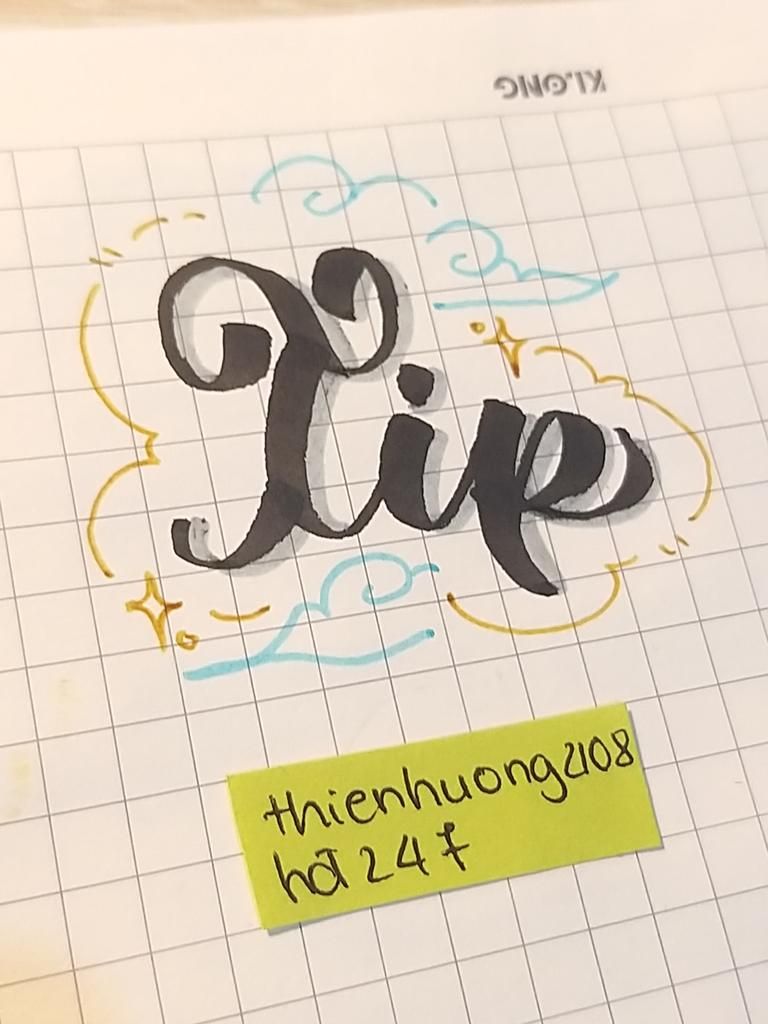 KLONG
Xip
thienhuong2108
hơi 247